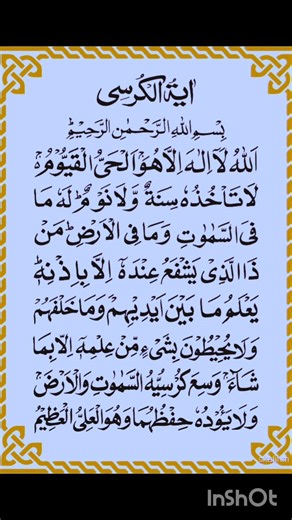 اٰیۃُ الکُرسِی
بِسْمِ اللهِ الرَّحْمٰنِ الرَّحِيْمِ
اَللهُ لَآ اِلٰهَ اِلَّا هُوَ الْحَیُّ الْقَیُّوْمُ ۚ
لَا تَاْخُذُهٗ سِنَةٌ وَّلَا نَوْمٌ ؕ لَهٗ مَا
فِی السَّمٰوٰتِ وَمَا فِی الْاَرْضِ ؕ مَنْ
ذَا الَّذِیْ یَشْفَعُ عِنْدَهٗۤ اِلَّا بِاِذْنِهٖ ؕ
یَعْلَمُ مَا بَیْنَ اَیْدِیْهِمْ وَمَا خَلْفَهُمْ ۚ
وَلَا یُحِیْطُوْنَ بِشَیْءٍ مِّنْ عِلْمِهٖۤ اِلَّا بِمَا
شَآءَ ۚ وَسِعَ كُرْسِیُّهُ السَّمٰوٰتِ وَالْاَرْضَ ۚ
وَلَا یَـُٔوْدُهٗ حِفْظُهُمَا ۚ وَهُوَ الْعَلِیُّ الْعَظِیْمُ
InShOt